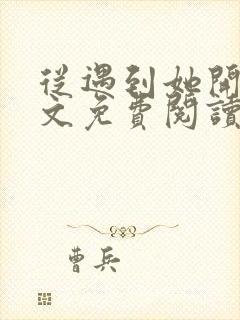 從遇到她開
文免費閱讀
曹兵